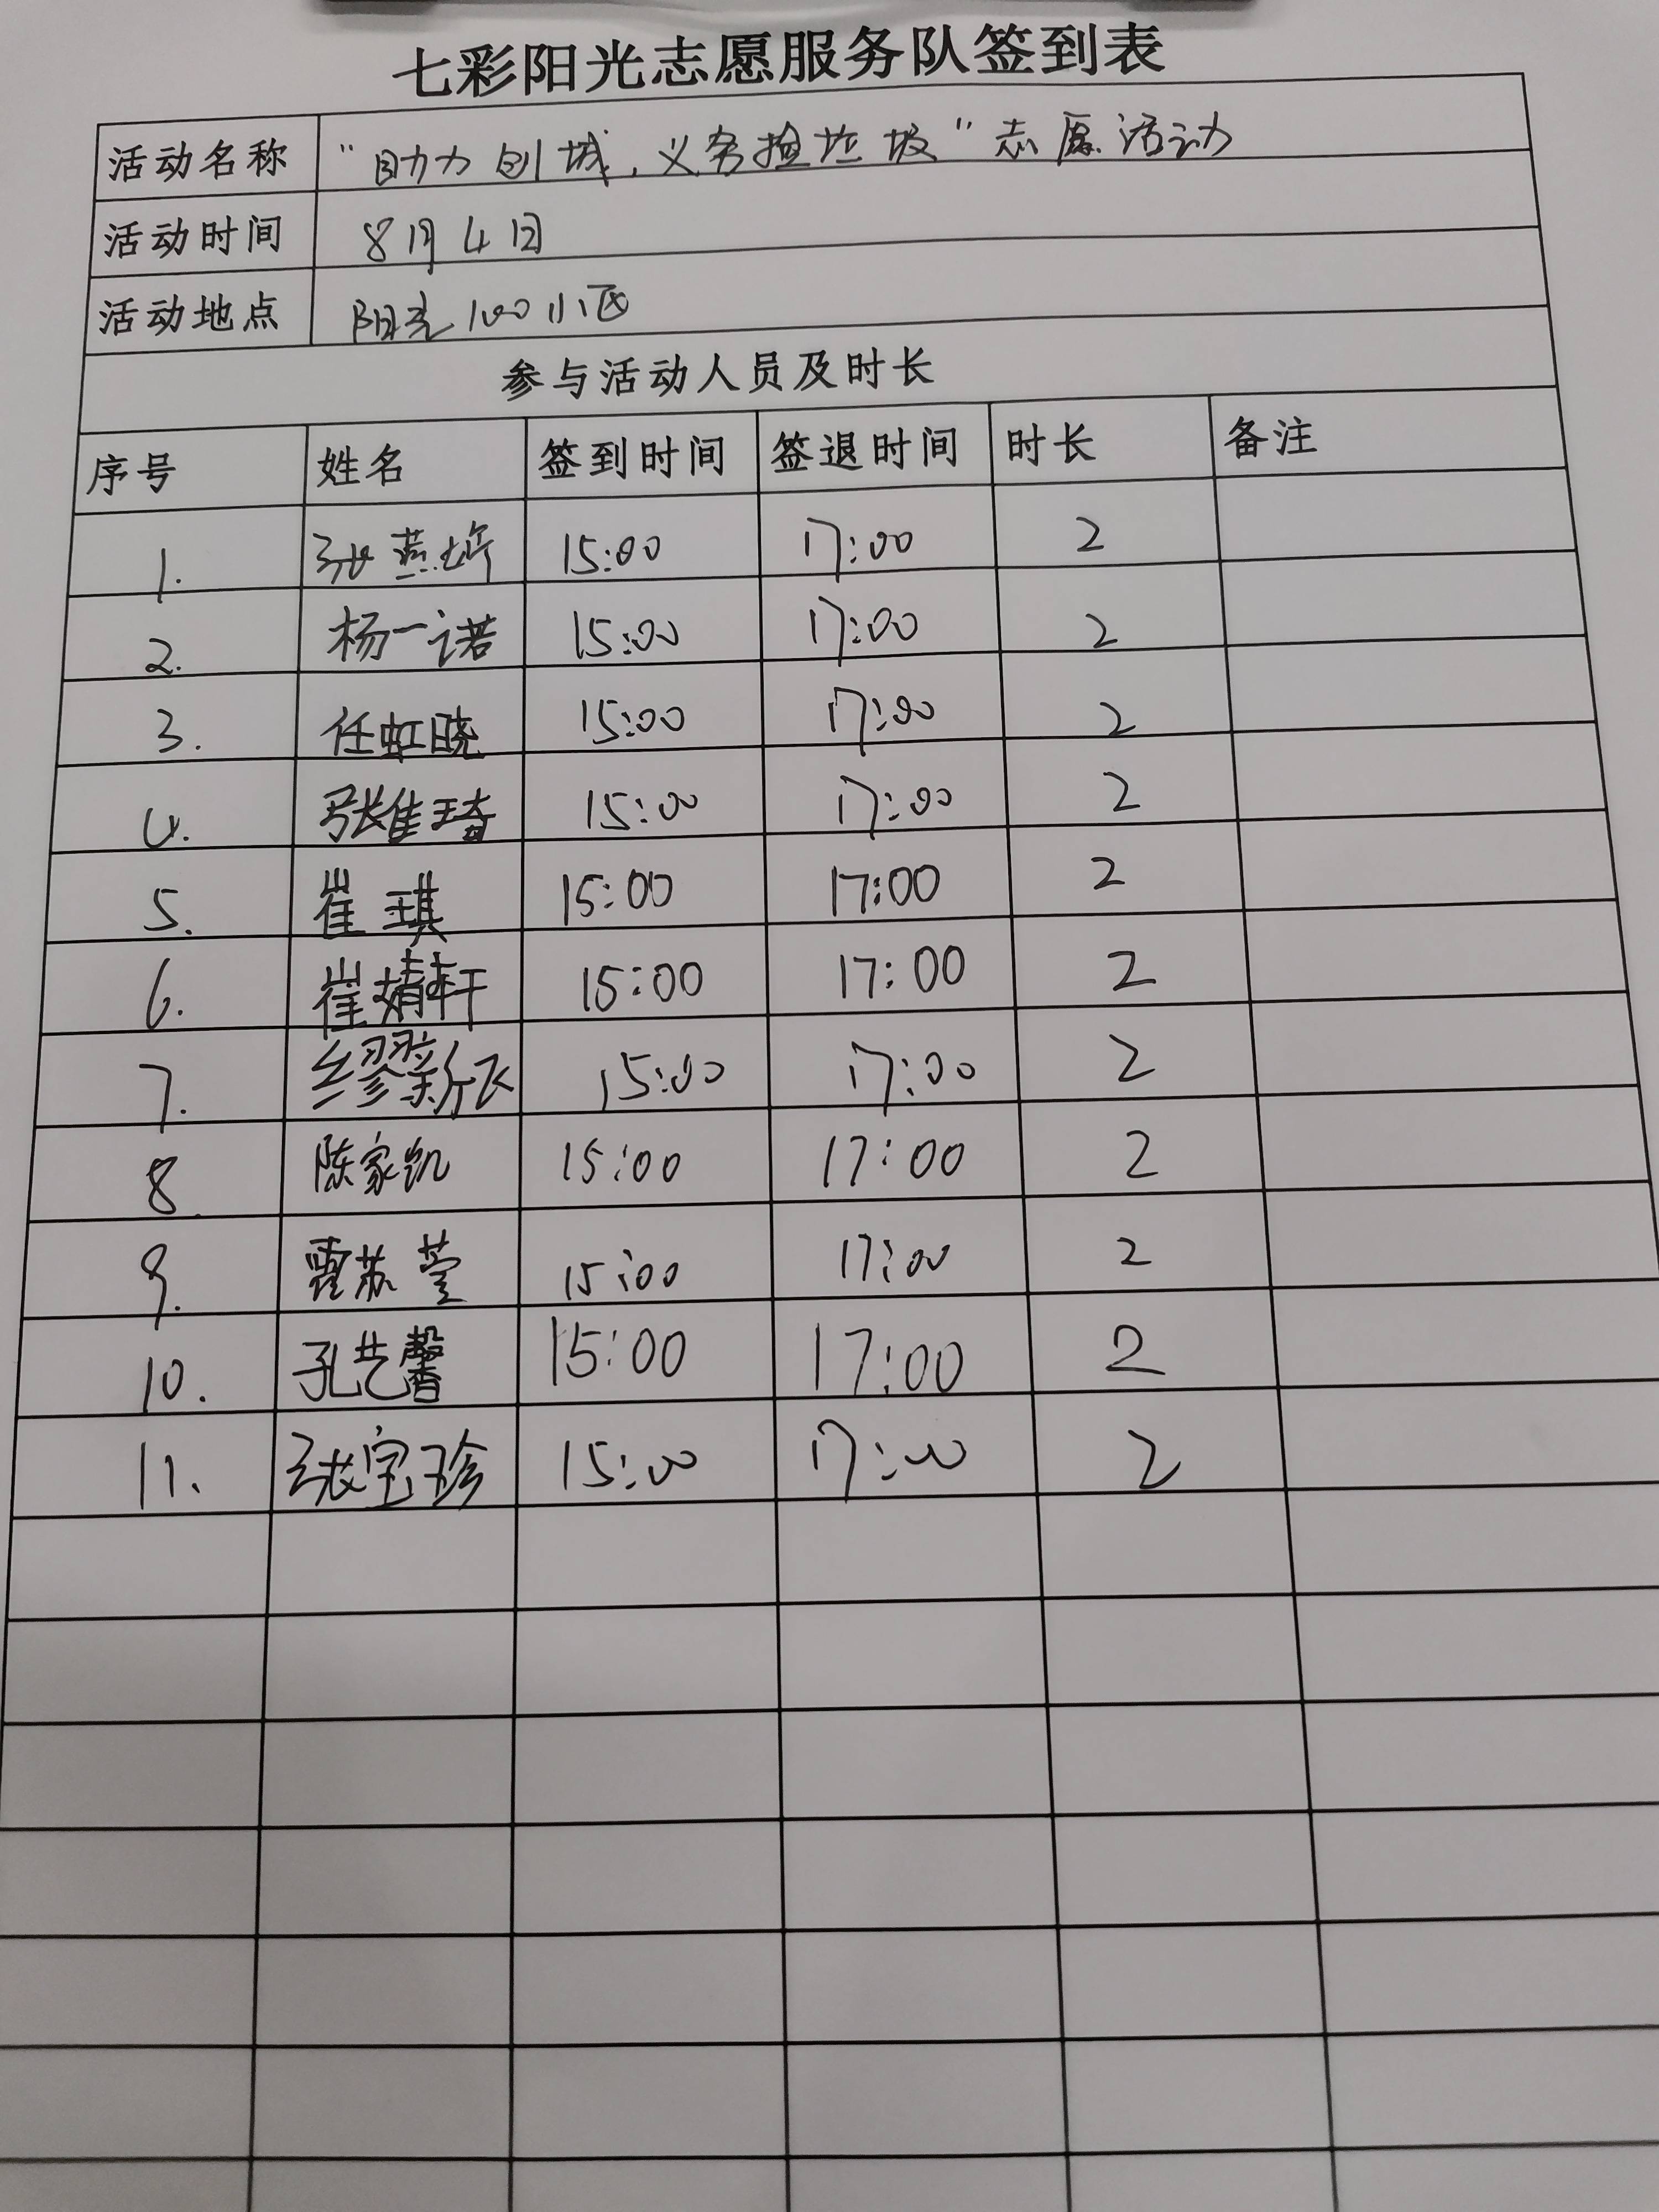 七彩阳光志愿服务队签到表
活动名称 "助力创城,义务捡垃圾"志愿活动
活动时间 8月4日
活动地点 阳光100小区
参与活动人员及时长
序号 姓名 签到时间 签退时间 时长 备注
1. 张燕婷 15:00 17:00 2
2. 杨一诺 15:00 17:00 2
3. 任虹晓 15:00 17:00 2
4. 张雀琦 15:00 17:00 2
5. 崔琪 15:00 17:00 2
6. 崔婧轩 15:00 17:00 2
7. 缪新飞 15:00 17:00 2
8. 陈家凯 15:00 17:00 2
9. 霍苏萱 15:00 17:00 2
10. 孔艺馨 15:00 17:00 2
11. 张宝珍 15:00 17:00 2